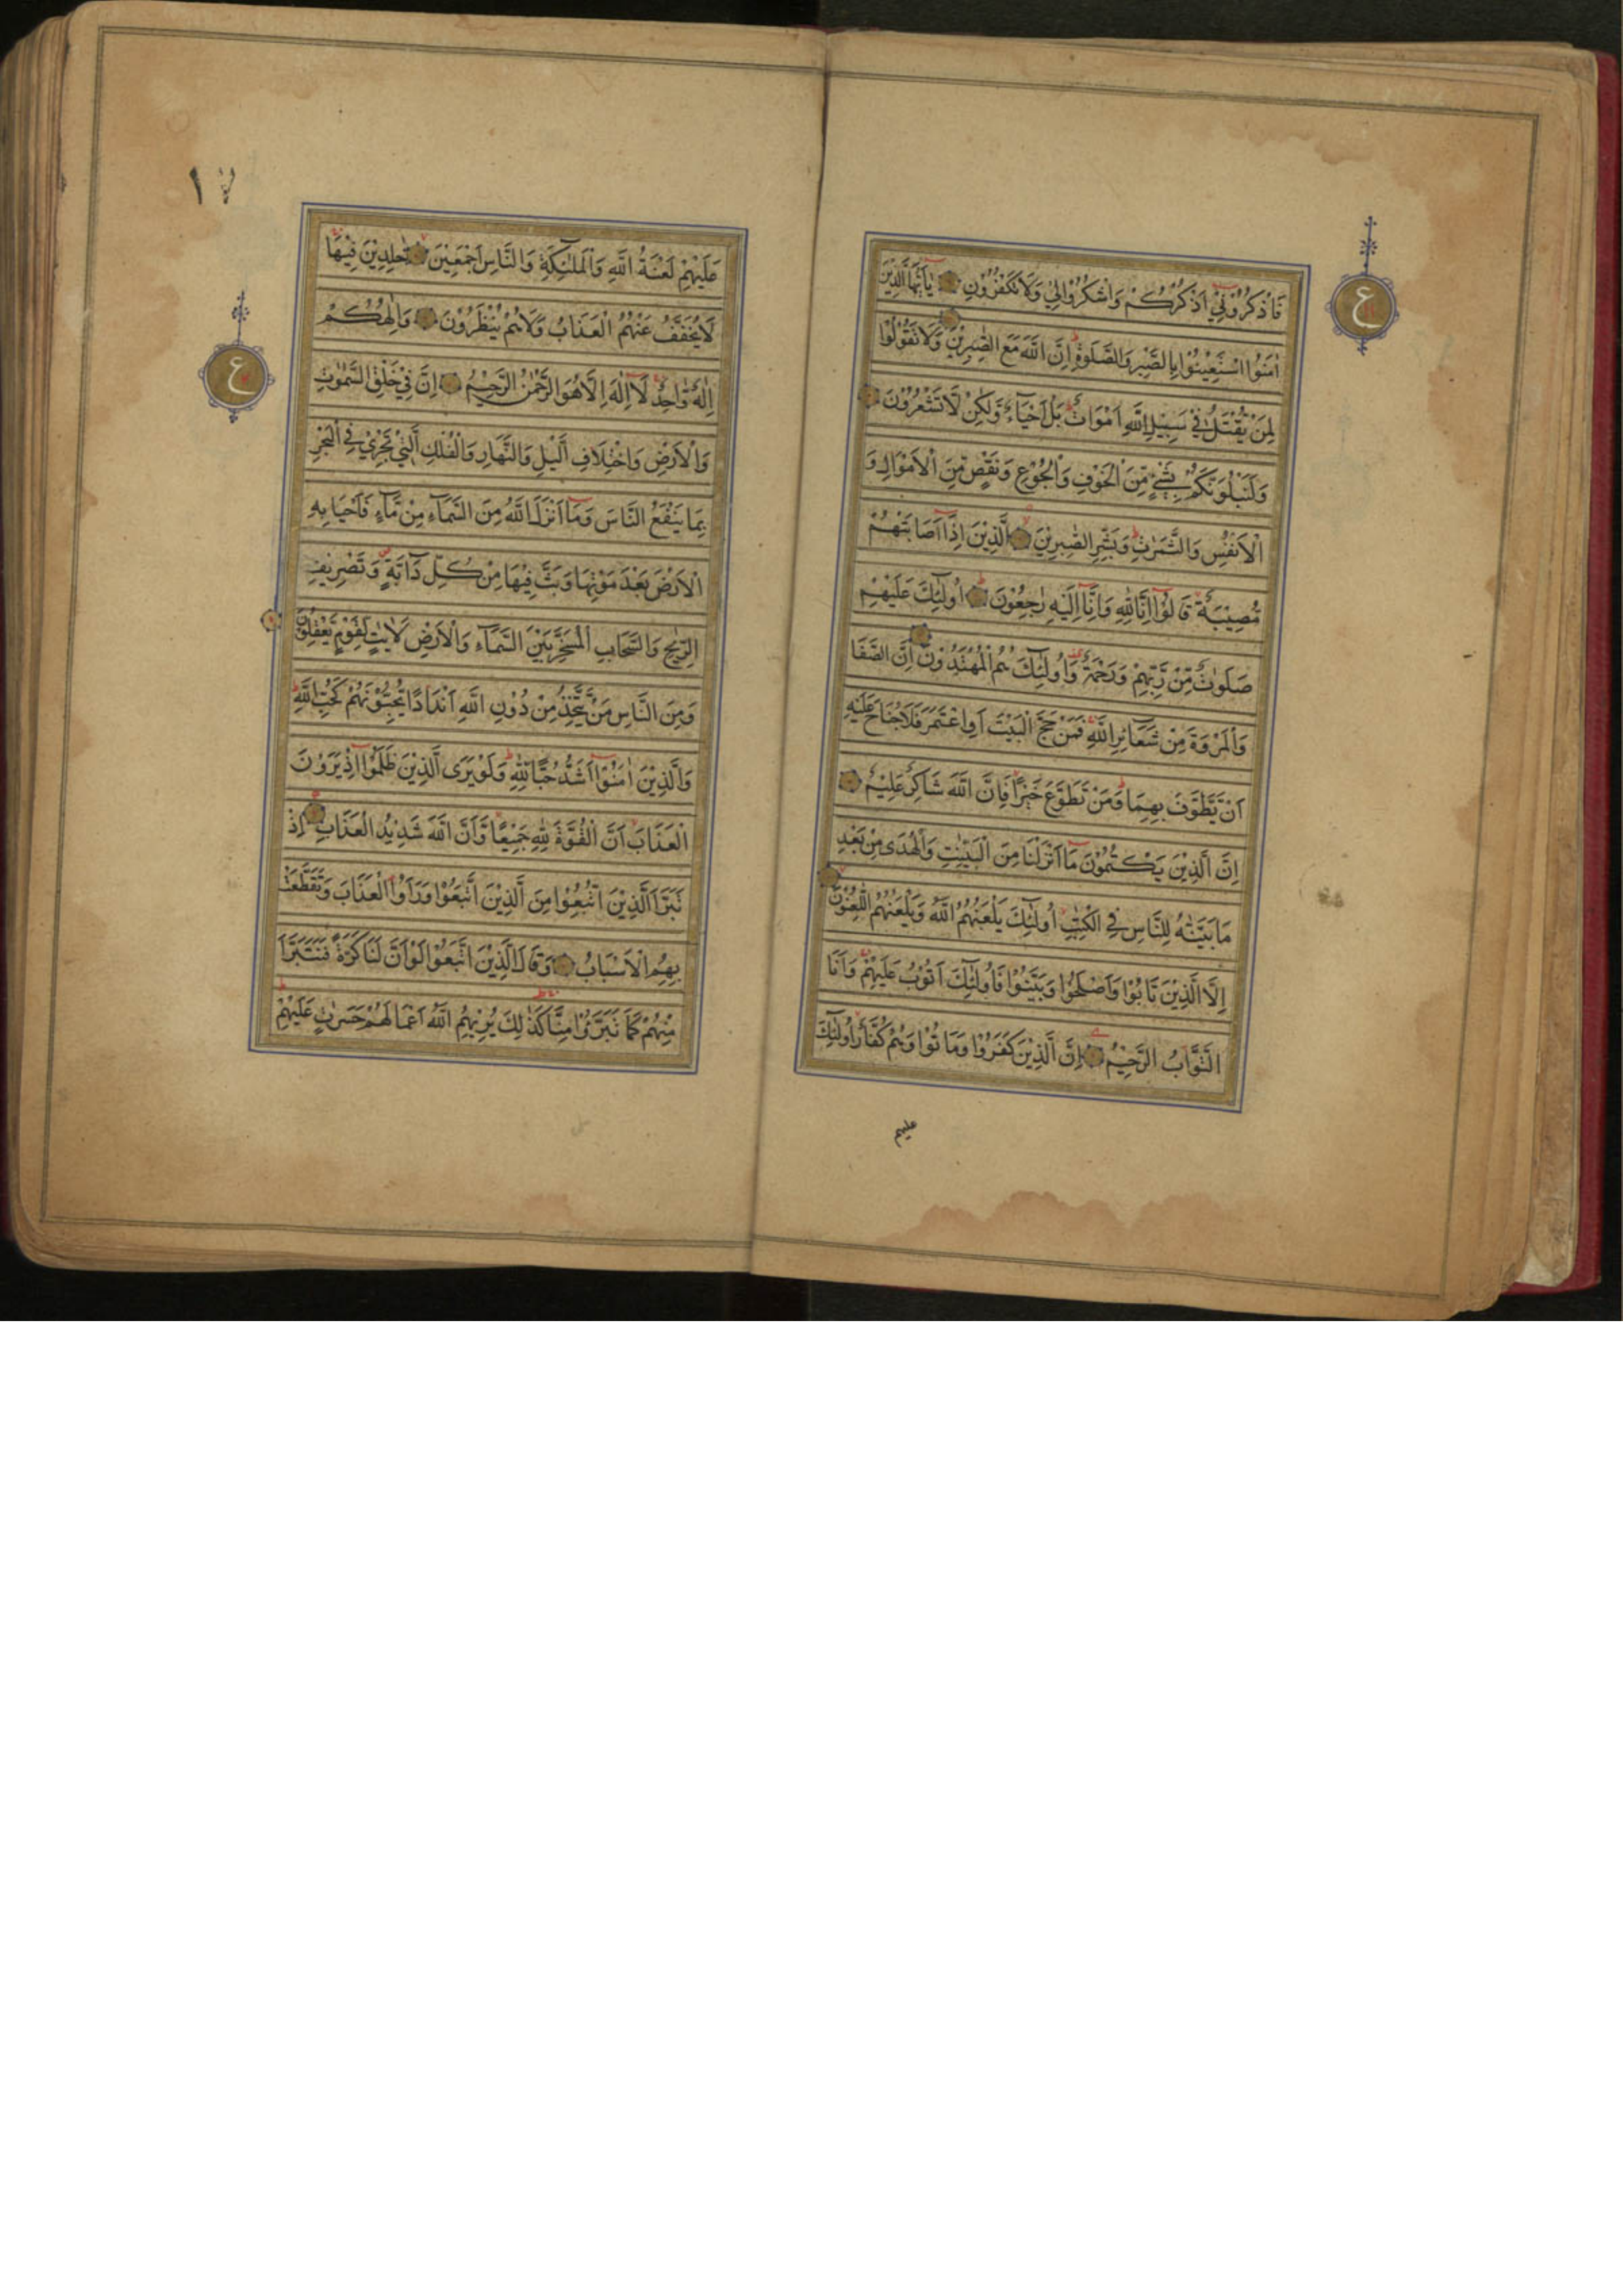 فَاذْكُرُوْنِيْٓ اَذْكُرْكُمْ وَاشْكُرُوْالِيْ وَلَاتَكْفُرُوْنِ يٰٓاَيُّهَا الَّذِيْنَ
اٰمَنُوا اسْتَعِيْنُوْا بِالصَّبْرِ وَالصَّلٰوةِ ؕ اِنَّ اللّٰهَ مَعَ الصّٰبِرِيْنَ وَلَا تَقُوْلُوْا
لِمَنْ يُّقْتَلُ فِيْ سَبِيْلِ اللّٰهِ اَمْوَاتٌ ؕ بَلْ اَحْيَآءٌ وَّلٰكِنْ لَّا تَشْعُرُوْنَ
وَلَنَبْلُوَنَّكُمْ بِشَيْءٍ مِّنَ الْخَوْفِ وَالْجُوْعِ وَنَقْصٍ مِّنَ الْاَمْوَالِ وَ
الْاَنْفُسِ وَالثَّمَرٰتِ ؕ وَبَشِّرِ الصّٰبِرِيْنَ الَّذِيْنَ اِذَآ اَصَابَتْهُمْ
مُّصِيْبَةٌ قَالُوْٓا اِنَّا لِلّٰهِ وَاِنَّآ اِلَيْهِ رٰجِعُوْنَ اُولٰٓئِكَ عَلَيْهِمْ
صَلَوٰتٌ مِّنْ رَّبِّهِمْ وَرَحْمَةٌ وَاُولٰٓئِكَ هُمُ الْمُهْتَدُوْنَ اِنَّ الصَّفَا
وَالْمَرْوَةَ مِنْ شَعَآئِرِ اللّٰهِ فَمَنْ حَجَّ الْبَيْتَ اَوِ اعْتَمَرَ فَلَا جُنَاحَ عَلَيْهِ
اَنْ يَّطَّوَّفَ بِهِمَا ؕ وَمَنْ تَطَوَّعَ خَيْرًا فَاِنَّ اللّٰهَ شَاكِرٌ عَلِيْمٌ
اِنَّ الَّذِيْنَ يَكْتُمُوْنَ مَآ اَنْزَلْنَا مِنَ الْبَيِّنٰتِ وَالْهُدٰى مِنْ بَعْدِ
مَا بَيَّنّٰهُ لِلنَّاسِ فِي الْكِتٰبِ اُولٰٓئِكَ يَلْعَنُهُمُ اللّٰهُ وَيَلْعَنُهُمُ اللّٰعِنُوْنَ
اِلَّا الَّذِيْنَ تَابُوْا وَاَصْلَحُوْا وَبَيَّنُوْا فَاُولٰٓئِكَ اَتُوْبُ عَلَيْهِمْ وَاَنَا
التَّوَّابُ الرَّحِيْمُ اِنَّ الَّذِيْنَ كَفَرُوْا وَمَاتُوْا وَهُمْ كُفَّارٌ اُولٰٓئِكَ
عليهم
ع
١٧
عَلَيْهِمْ لَعْنَةُ اللّٰهِ وَالْمَلٰٓئِكَةِ وَالنَّاسِ اَجْمَعِيْنَ خٰلِدِيْنَ فِيْهَا
لَا يُخَفَّفُ عَنْهُمُ الْعَذَابُ وَلَا هُمْ يُنْظَرُوْنَ وَاِلٰهُكُمْ
اِلٰهٌ وَّاحِدٌ لَآ اِلٰهَ اِلَّا هُوَ الرَّحْمٰنُ الرَّحِيْمُ اِنَّ فِيْ خَلْقِ السَّمٰوٰتِ
وَالْاَرْضِ وَاخْتِلَافِ الَّيْلِ وَالنَّهَارِ وَالْفُلْكِ الَّتِيْ تَجْرِيْ فِي الْبَحْرِ
بِمَا يَنْفَعُ النَّاسَ وَمَآ اَنْزَلَ اللّٰهُ مِنَ السَّمَآءِ مِنْ مَّآءٍ فَاَحْيَا بِهِ
الْاَرْضَ بَعْدَ مَوْتِهَا وَبَثَّ فِيْهَا مِنْ كُلِّ دَآبَّةٍ وَّتَصْرِيْفِ
الرِّيٰحِ وَالسَّحَابِ الْمُسَخَّرِ بَيْنَ السَّمَآءِ وَالْاَرْضِ لَاٰيٰتٍ لِّقَوْمٍ يَّعْقِلُوْنَ
وَمِنَ النَّاسِ مَنْ يَّتَّخِذُ مِنْ دُوْنِ اللّٰهِ اَنْدَادًا يُّحِبُّوْنَهُمْ كَحُبِّ اللّٰهِ ؕ
وَالَّذِيْنَ اٰمَنُوْٓا اَشَدُّ حُبًّا لِلّٰهِ ؕ وَلَوْ يَرَى الَّذِيْنَ ظَلَمُوْٓا اِذْ يَرَوْنَ
الْعَذَابَ اَنَّ الْقُوَّةَ لِلّٰهِ جَمِيْعًا وَّاَنَّ اللّٰهَ شَدِيْدُ الْعَذَابِ اِذْ
تَبَرَّاَ الَّذِيْنَ اتُّبِعُوْا مِنَ الَّذِيْنَ اتَّبَعُوْا وَرَاَوُا الْعَذَابَ وَتَقَطَّعَتْ
بِهِمُ الْاَسْبَابُ وَقَالَ الَّذِيْنَ اتَّبَعُوْا لَوْ اَنَّ لَنَا كَرَّةً فَنَتَبَرَّاَ
مِنْهُمْ كَمَا تَبَرَّءُوْا مِنَّا كَذٰلِكَ يُرِيْهِمُ اللّٰهُ اَعْمَالَهُمْ حَسَرٰتٍ عَلَيْهِمْ ؕ
ع